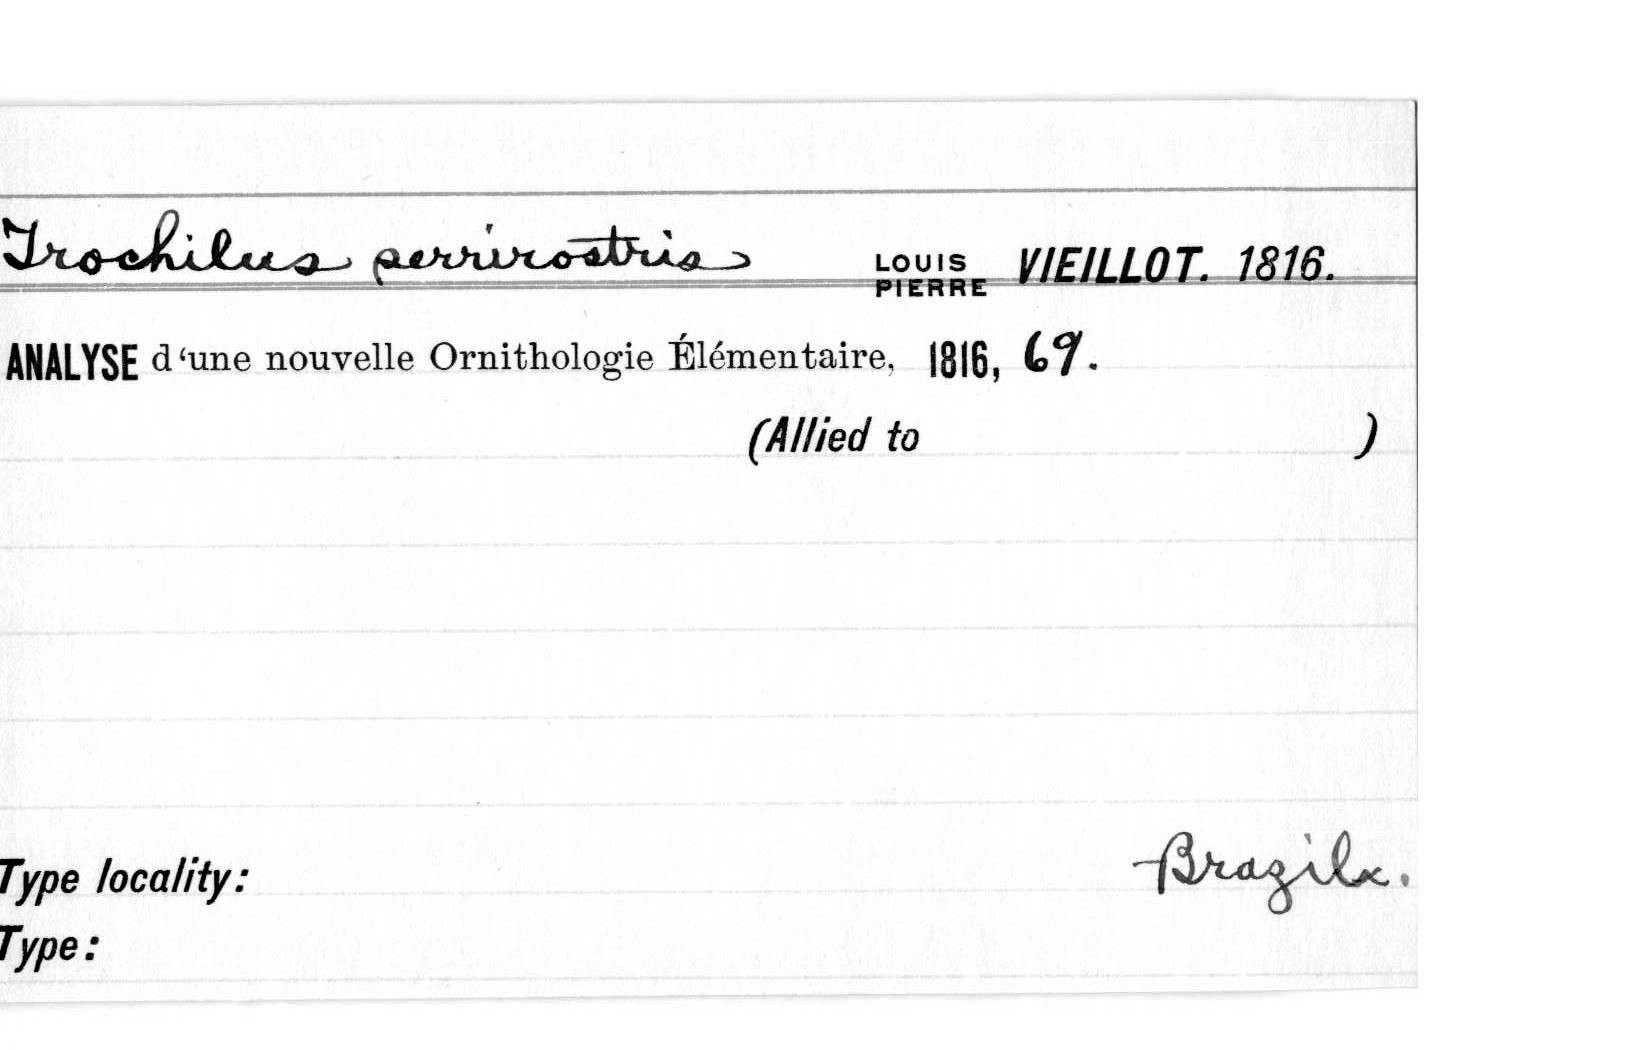 Trochilus serrirostris LOUIS PIERRE VIEILLOT. 1816.
ANALYSE d'une nouvelle Ornithologie Élémentaire, 1816, 69.
(Allied to )
Type locality: Brazil.
Type: